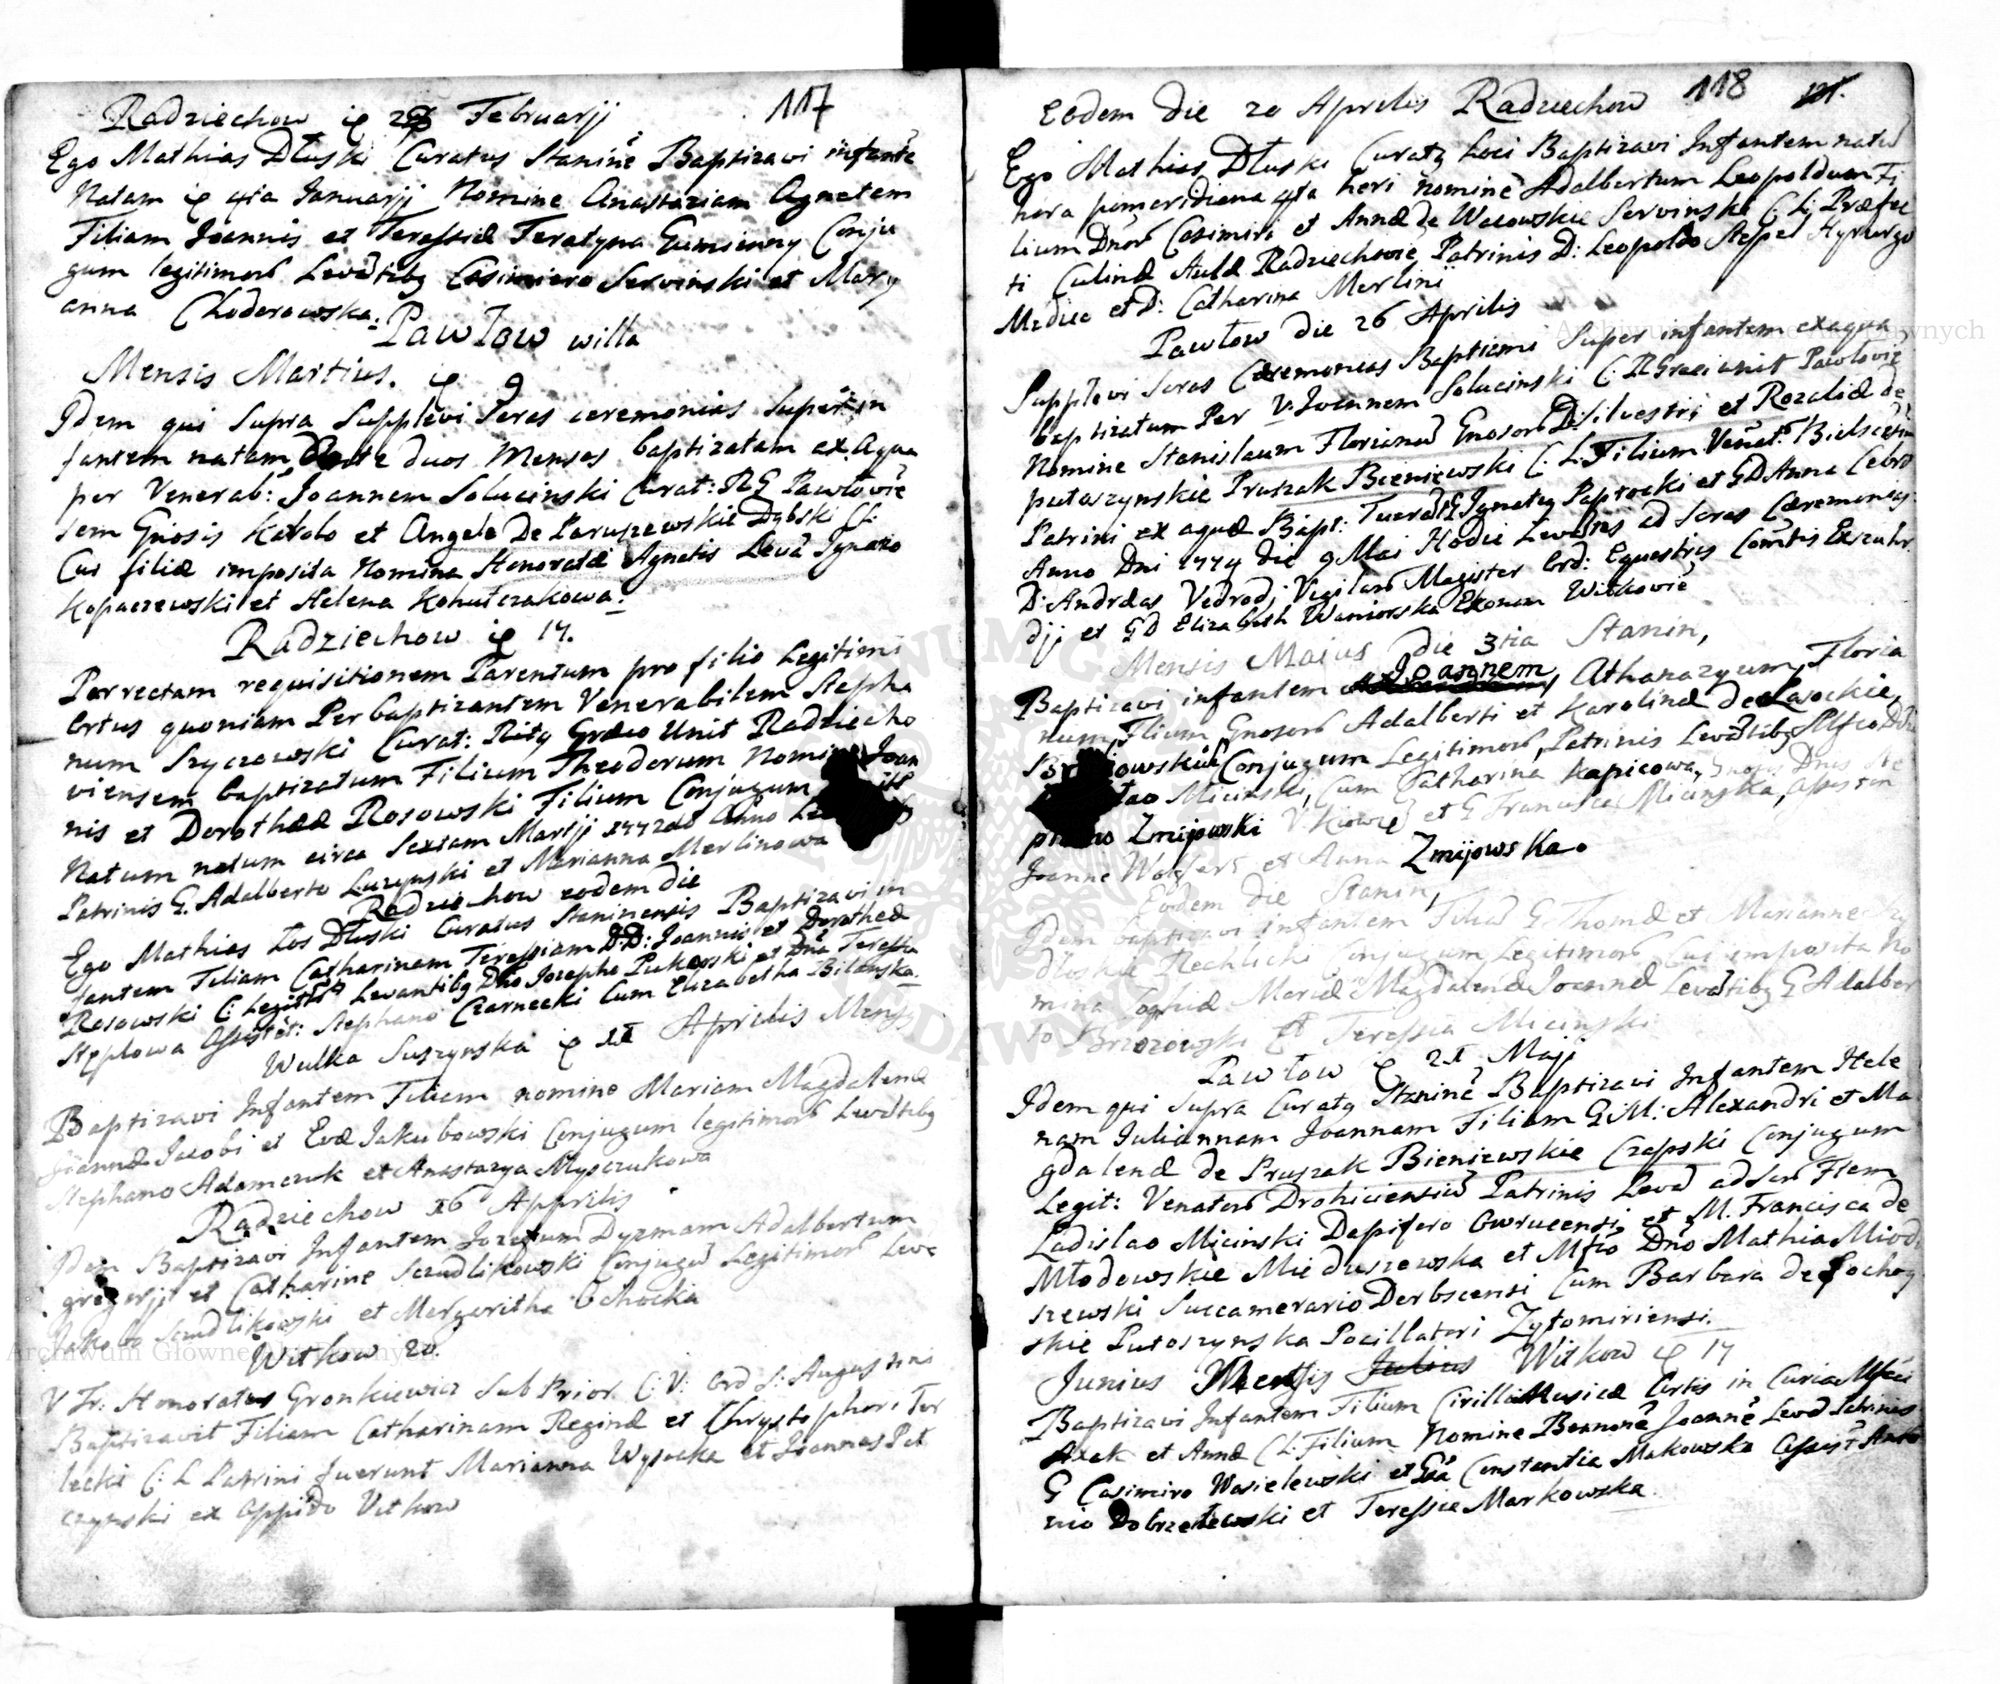 117
Radziechow 28 Februarij
Ego Mathias Dłuski Curatus Stanine Baptizavi infante
Natam 4ta Januarij Nomine Anastaziam Agnetem
Filiam Joannis et Teressiæ Teratyna Gumienny Conju
gum legitimor Levātibq Casimiero Servinski et Mary
anna Choderowska:
Pawłow willa
Mensis Martius. 9
Idem qui Supra Supplevi Seras ceremonias Super in
fantem natam duos Menses baptizatam ex Aqua
per Venerab: Joannem Solucinski Curat: R G Pawłowie
sem Gnosis Karolo et Angela De Paruszewskie Dąbski C:
Cui filiæ imposita Nomina Honoratæ Agnetis Levā Ignatio
Kopaczewski et Helena Kohutczakowa:
Radziechow 17.
Per rectam requisitionem Parentum pro filio Legitimi
Ortus quoniam Per baptizantem Venerabilem Stepha
num Szyczowski Curat: Ritq Græco Unit Radziecho
viensem baptizatum Filium Theodorum Nomi Joan
nis et Dorothææ Rosowski Filium Conjugum
Natum natum circa Sextam Martij Anno
Patrinis G. Adalberto Luzynski et Marianna Merlinowa
Radziechow eodem die
Ego Mathias Łos Dłuski Curatus Staninensis Baptizavi in
fantem Filiam Catharinam Teressiam D.D: Joannis et Dorotheæ
Rosowski C: Legittor Levantibq Dno Josepho Pukarski et Dna Teressia
Steplowa Assistēt: Stephano Czarnecki Cum Elizabetha Bilanska.
Wulka Suszynska 11 Aprilis Mensis
Baptizavi Infantem Filiam nomine Mariam Magdalenā
Joannæ Jacobi et Evæ Jakubowski Conjugum legitimor Levātibq
Stephano Adamczuk et Anastazya Mysczukowa
Radziechow 16 Apprilis
Idem Baptizavi Infantem Jozefum Dyzmam Adalbertum
gregorij et Catharine Scudlikowski Conjugū Legitimor Leva
Jakobo Scudlikowski et Margaritha Ochocka
Witkow 20.
V Fr: Honoratus Gronkiewicz Sub Prior C: V: Ord S: Augustini
Baptizavit Filiam Catharinam Reginæ et Chrystophori Tur
lecki C: L Patrini fuerunt Marianna Wysocka et Joannes Pet
czynski ex Oppido Vitkow
118
Eodem die 20 Aprilis Radziechow
Ego Mathias Dłuski Curatq Loci Baptizavi Infantem natū
hora pomeridiana 4ta heri nomine Adalbertum Leopoldum Fi
lium Dnor Casimiri et Annæ de Wasowskie Servinski C: L: Præfec
ti Culinæ Aulæ Radziechovie, Patrinis D: Leopoldo Steper Hyrurgo
Medico et D: Catharina Merlini
Pawłow die 26 Aprilis
Supplevi Seras Ceremonias Baptismi Super infantem ex aqua
baptizatum Per V. Joannem Solucinski C: R Græci Unit Pawlovie
Nomine Stanislaum Florianū Gnosor D: Silvestri et Rozaliæ de
putoszynskie Pruszak Bieniewski C: L. Filium Venat: Bielscensiu
Patrini ex aquæ Bapt: fuerūt G Ignatq Paprocki et G D Anna Cebro
Anno Dni 1774 die 9 Mai Hodie Levātes ad Seras Cæremonias
D: Andræas Vedrod, Vigilar Magister Ord: Equestris Comitis Exzuhr
dij et G D Elizabeth Waniorska Ekonom Witkovie
Mensis Maius Die 3tia Stanin,
Baptizavi infantem Joannem, Athanazyum, Floria
num, Filium Gnosor Adalberti et Karolinæ de Lasockie,
Br iowskich Conjugum Legitimor, Patrinis Levātibq Mfco
lao Micinski, Cum Catharina Kapicowa, Gnosis Dnis Ste
phano Zmijowski V. Kiowie et G Francisca Micinska, Assisten
Joanne Wolfers et Anna Zmijowska.
Eodem die Stanin,
Idem baptizavi infantem Filiā G Thomæ et Marianne
dłoskie Rechlicki Conjugum Legitimor Cui imposita No
mina Zophiæ Mariæ Magdalenæ Joannæ Levātibq G Adalber
to Brzozowski et Teressia Micinski
Pawłow 21 Maij
Idem qui Supra Curatq Stanine Baptizavi Infantem Hele
nam Juliannam Joannam Filiam G: M: Alexandri et Ma
gdalenæ de Pruszak Bieniewskie Czapski Conjugum
Legit: Venator Drohiciensiu Patrinis Levā ad Sar Ftem
Ladislao Micinski Dapifero Owrucensi, et M. Francisca de
Młodowskie Mieduszewska et Mfco Dno Mathia Miodu
szewski Succamerario Derbscensi Cum Barbara de Łochoy
skie Putoszynska Pocillatori Zytomiriensi.
Junius Mensis Julius Witkow 17
Baptizavi Infantem Filium Cirilli Musicæ Artis in Curia Mfci
Axak et Annæ C L: Filium Nomine Bennonē Joannē Levā Patrinis
G Casimiro Wasielewski et Gsa Constantia Makowska Assist Anto
nio Dobrzelewski et Teressia Markowska